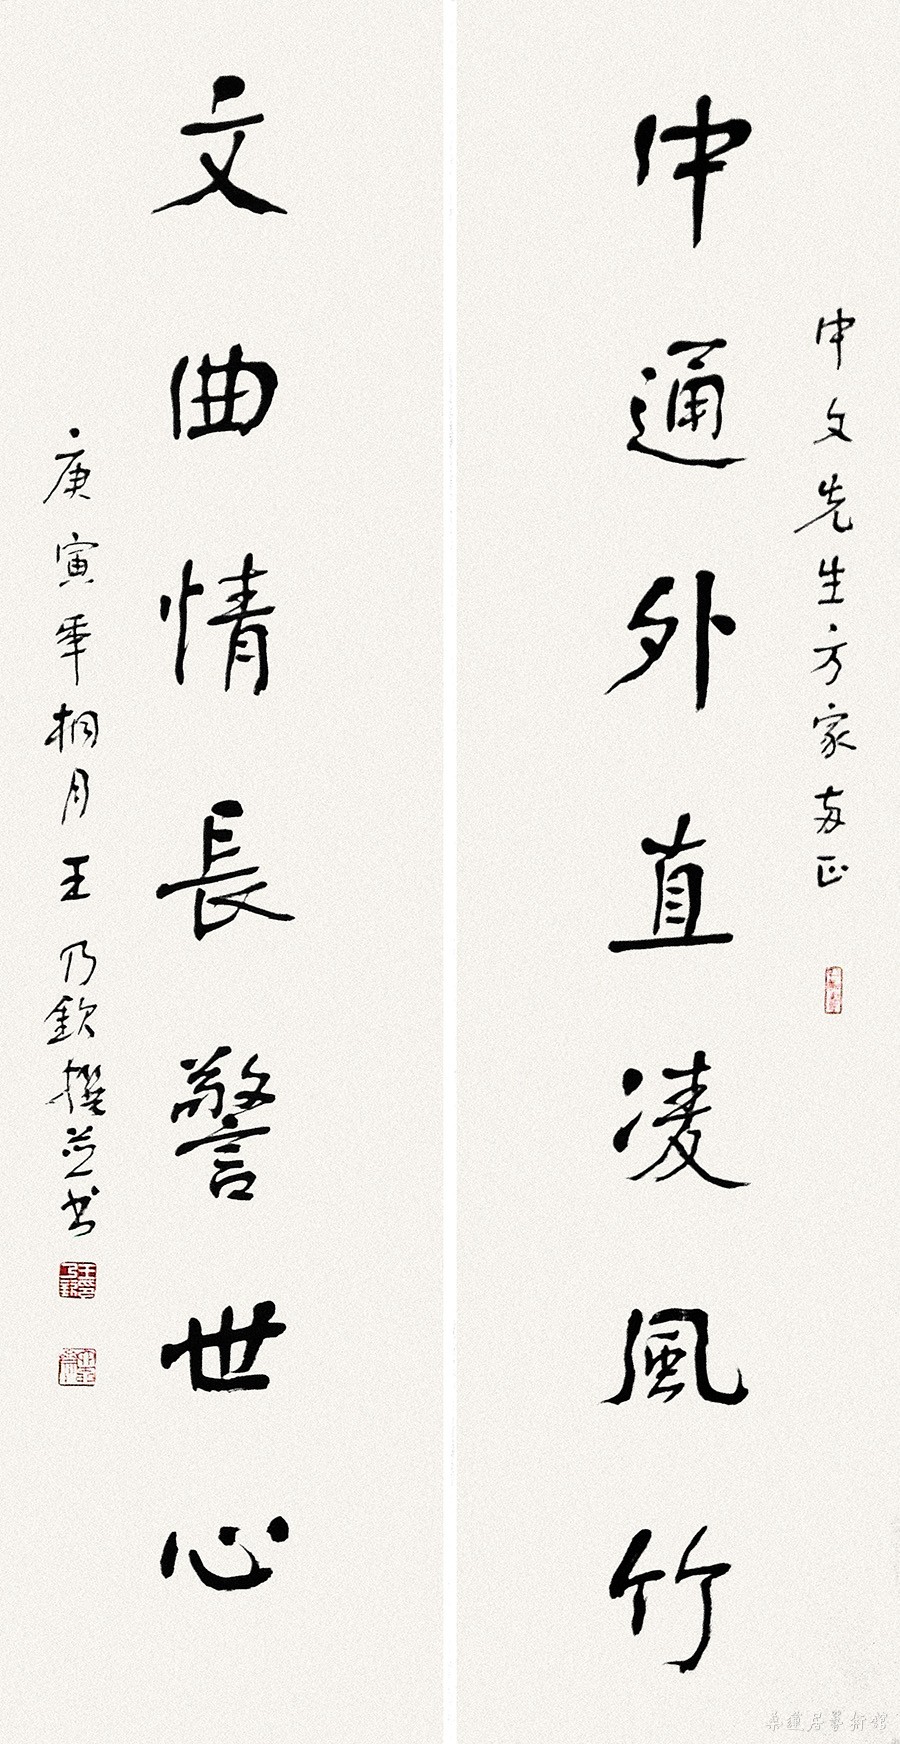 中文先生方家两正
中通外直凌风竹
文曲情長警世心
庚寅年桐月王乃欽撰並书